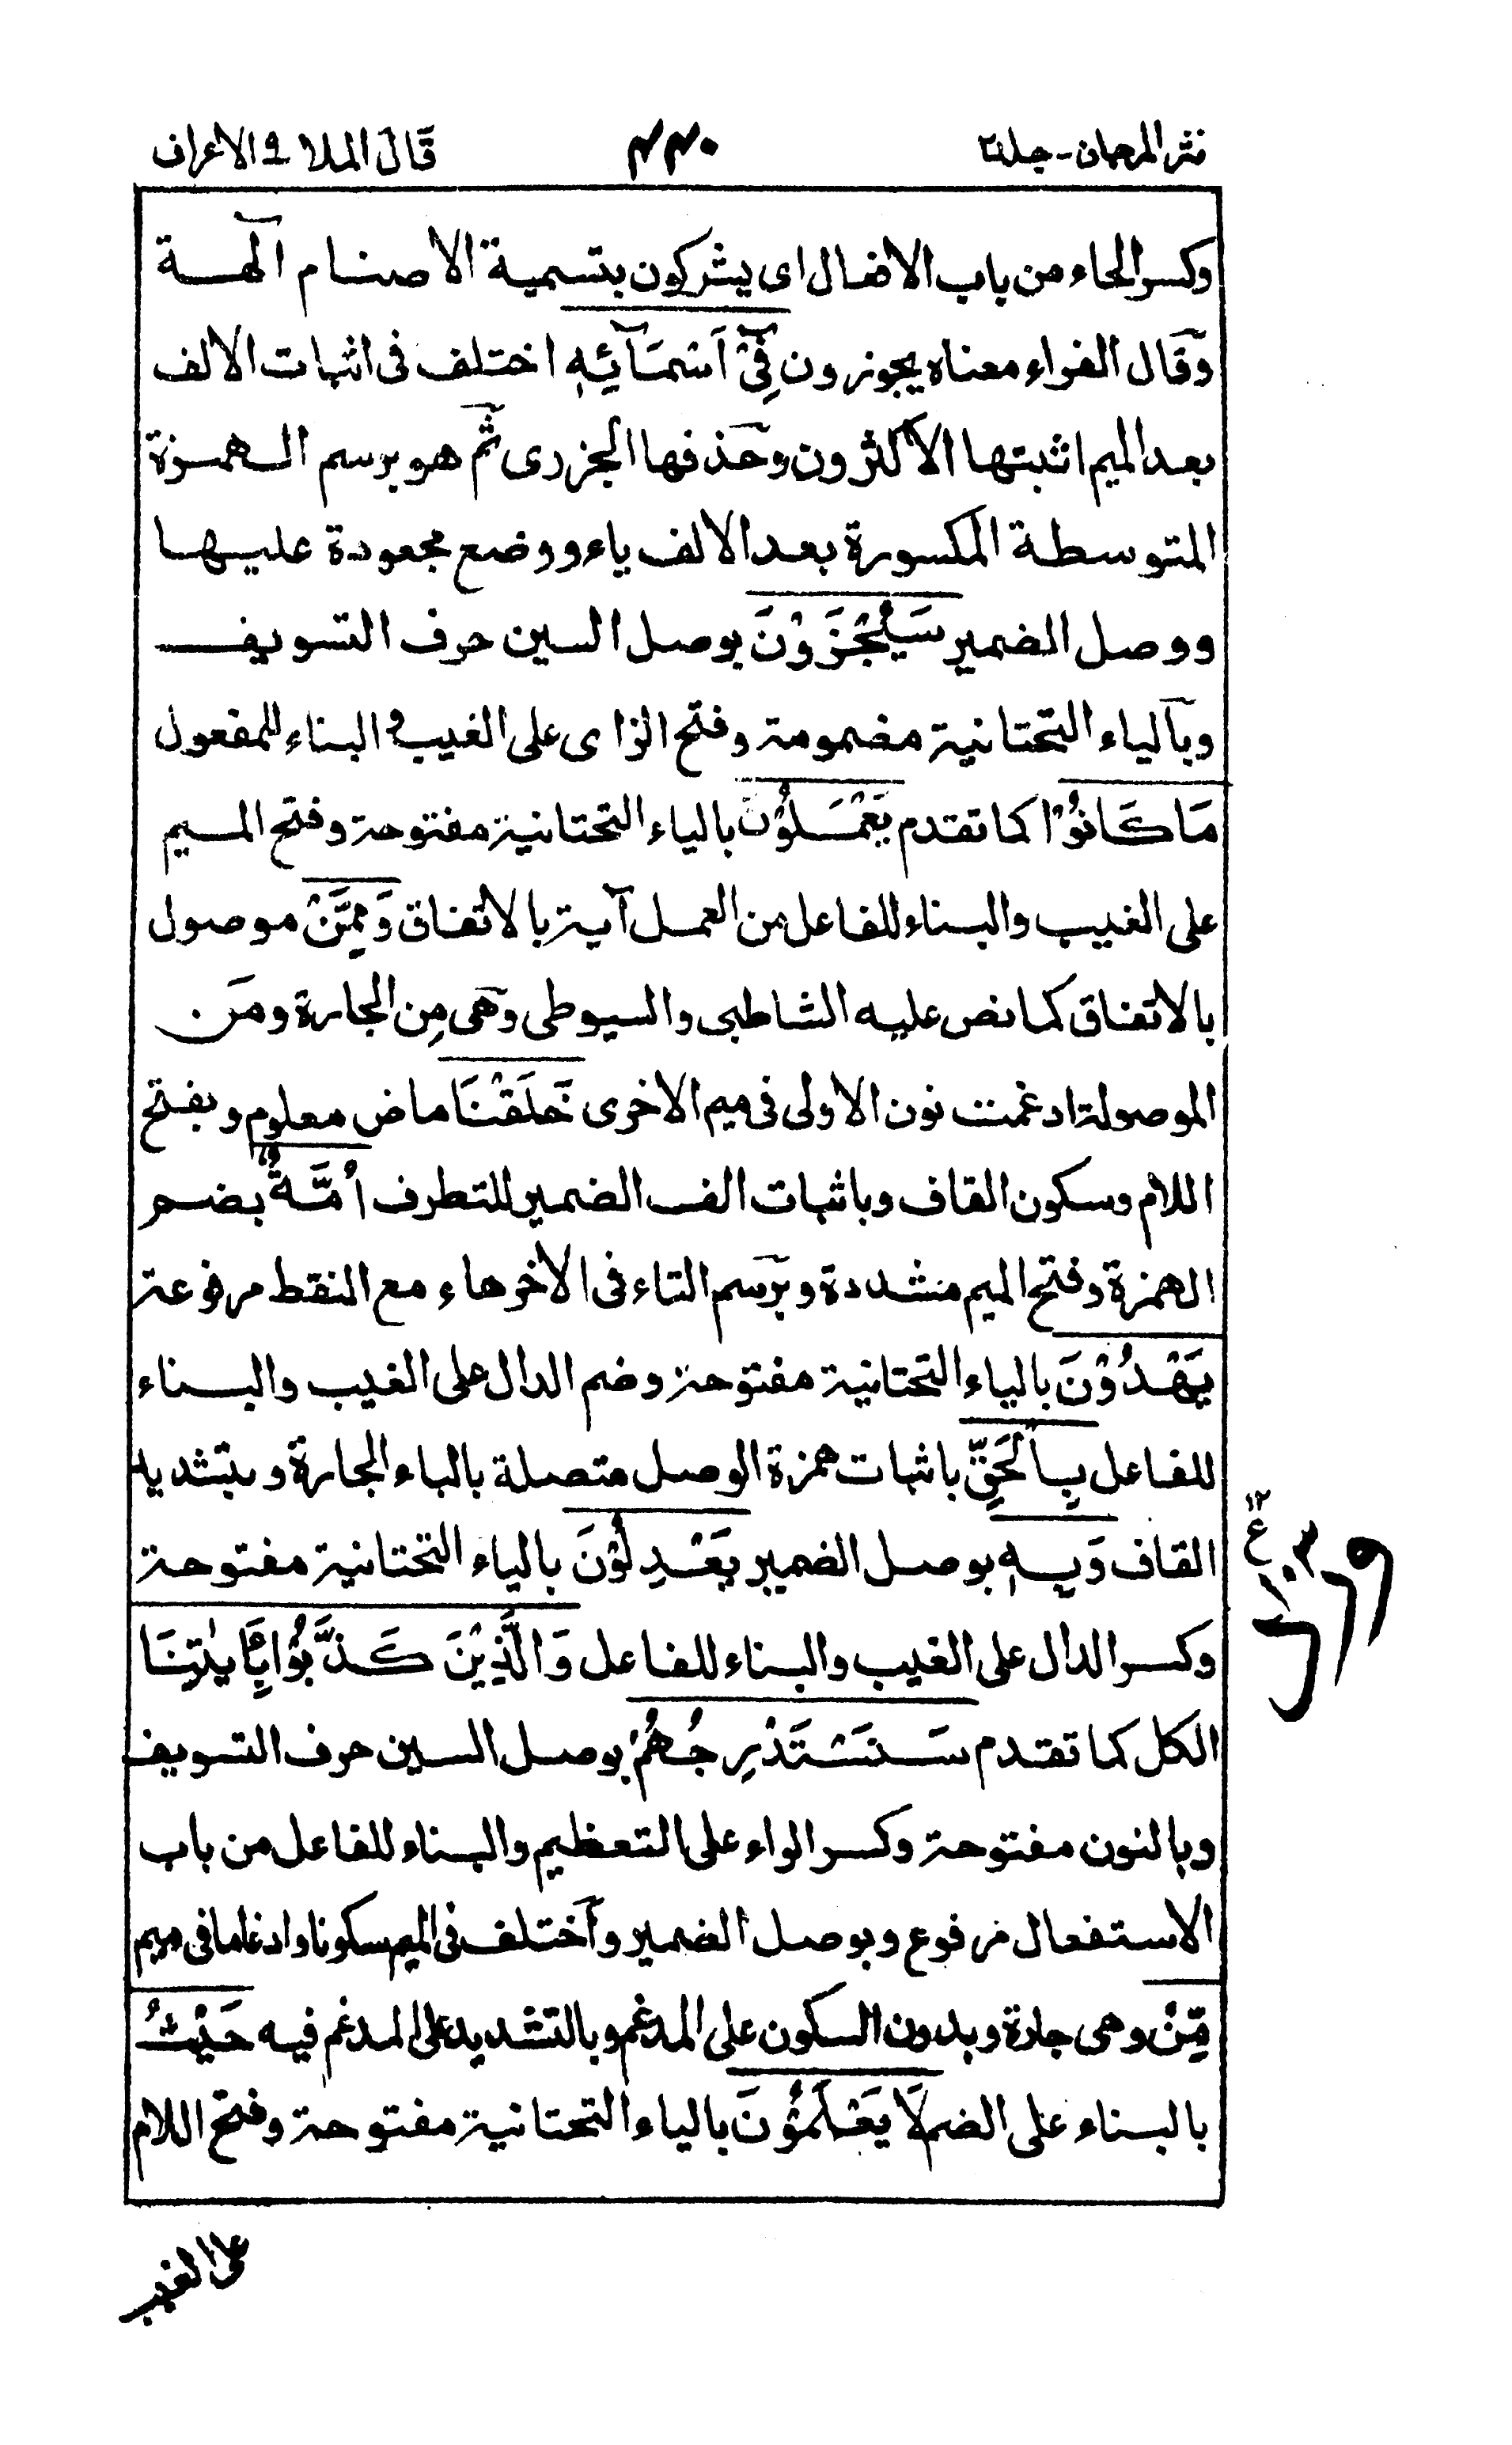 نثر المرجان - جلد٢
٤٤٠
قَالَ الملا ٩ الاعراف
وكسر الحاء من باب الافعال اى يشركون بتسمية الاصنام آلهة
وقال الفراء معناه يجوزون فِيْٓ اَسْمَآئِهٖ اختلف فى اثبات الالف
بعد الميم اثبتها الاكثرون وحذفها الجزرى ثم هو برسم الهمزة
المتوسطة المكسورة بعد الالف ياء ووضع مجعودة عليها
ووصل الضمير سَيُجْزَوْنَ بوصل السين حرف التسويف
وبالياء التحتانية مضمومة وفتح الزاى على الغيب والبناء للمفعول
مَا كَانُوْا كما تقدم يَعْمَلُوْنَ بالياء التحتانية مفتوحة وفتح الميم
على الغيب والبناء للفاعل من العمل آية بالاتفاق وَمِمَّنْ موصول
بالاتفاق كما نص عليه الشاطبى والسيوطى وهى مِن الجارة ومَن
الموصولة ادغمت نون الاولى فى ميم الاخرى خَلَقْنَا ماض معلوم وبفتح
اللام وسكون القاف وباثبات الف الضمير للتطرف اُمَّةٌ بضم
الهمزة وفتح الميم مشددة وبرسم التاء فى الاخر هاء مع النقط مرفوعة
يَهْدُوْنَ بالياء التحتانية مفتوحة وضم الدال على الغيب والبناء
للفاعل بِالْحَقِّ باثبات همزة الوصل متصلة بالباء الجارة وبتشديد
القاف وَبِهٖ بوصل الضمير يَعْدِلُوْنَ بالياء التحتانية مفتوحة
١٢
ع
وكسر الدال على الغيب والبناء للفاعل وَالَّذِيْنَ كَذَّبُوْا بِاٰيٰتِنَا
الكل كما تقدم سَنَسْتَدْرِجُهُمْ بوصل السين حرف التسويف
وبالنون مفتوحة وكسر الراء على التعظيم والبناء للفاعل من باب
الاستفعال مرفوع وبوصل الضمير واختلف فى الميم سكونا وادغاما فى ميم
مِّنْ وهى جارة وبدون السكون على المدغم وبالتشديد على المدغم فيه حَيْثُ
بالبناء على الضم لَا يَعْلَمُوْنَ بالياء التحتانية مفتوحة وفتح اللام
على الغيب